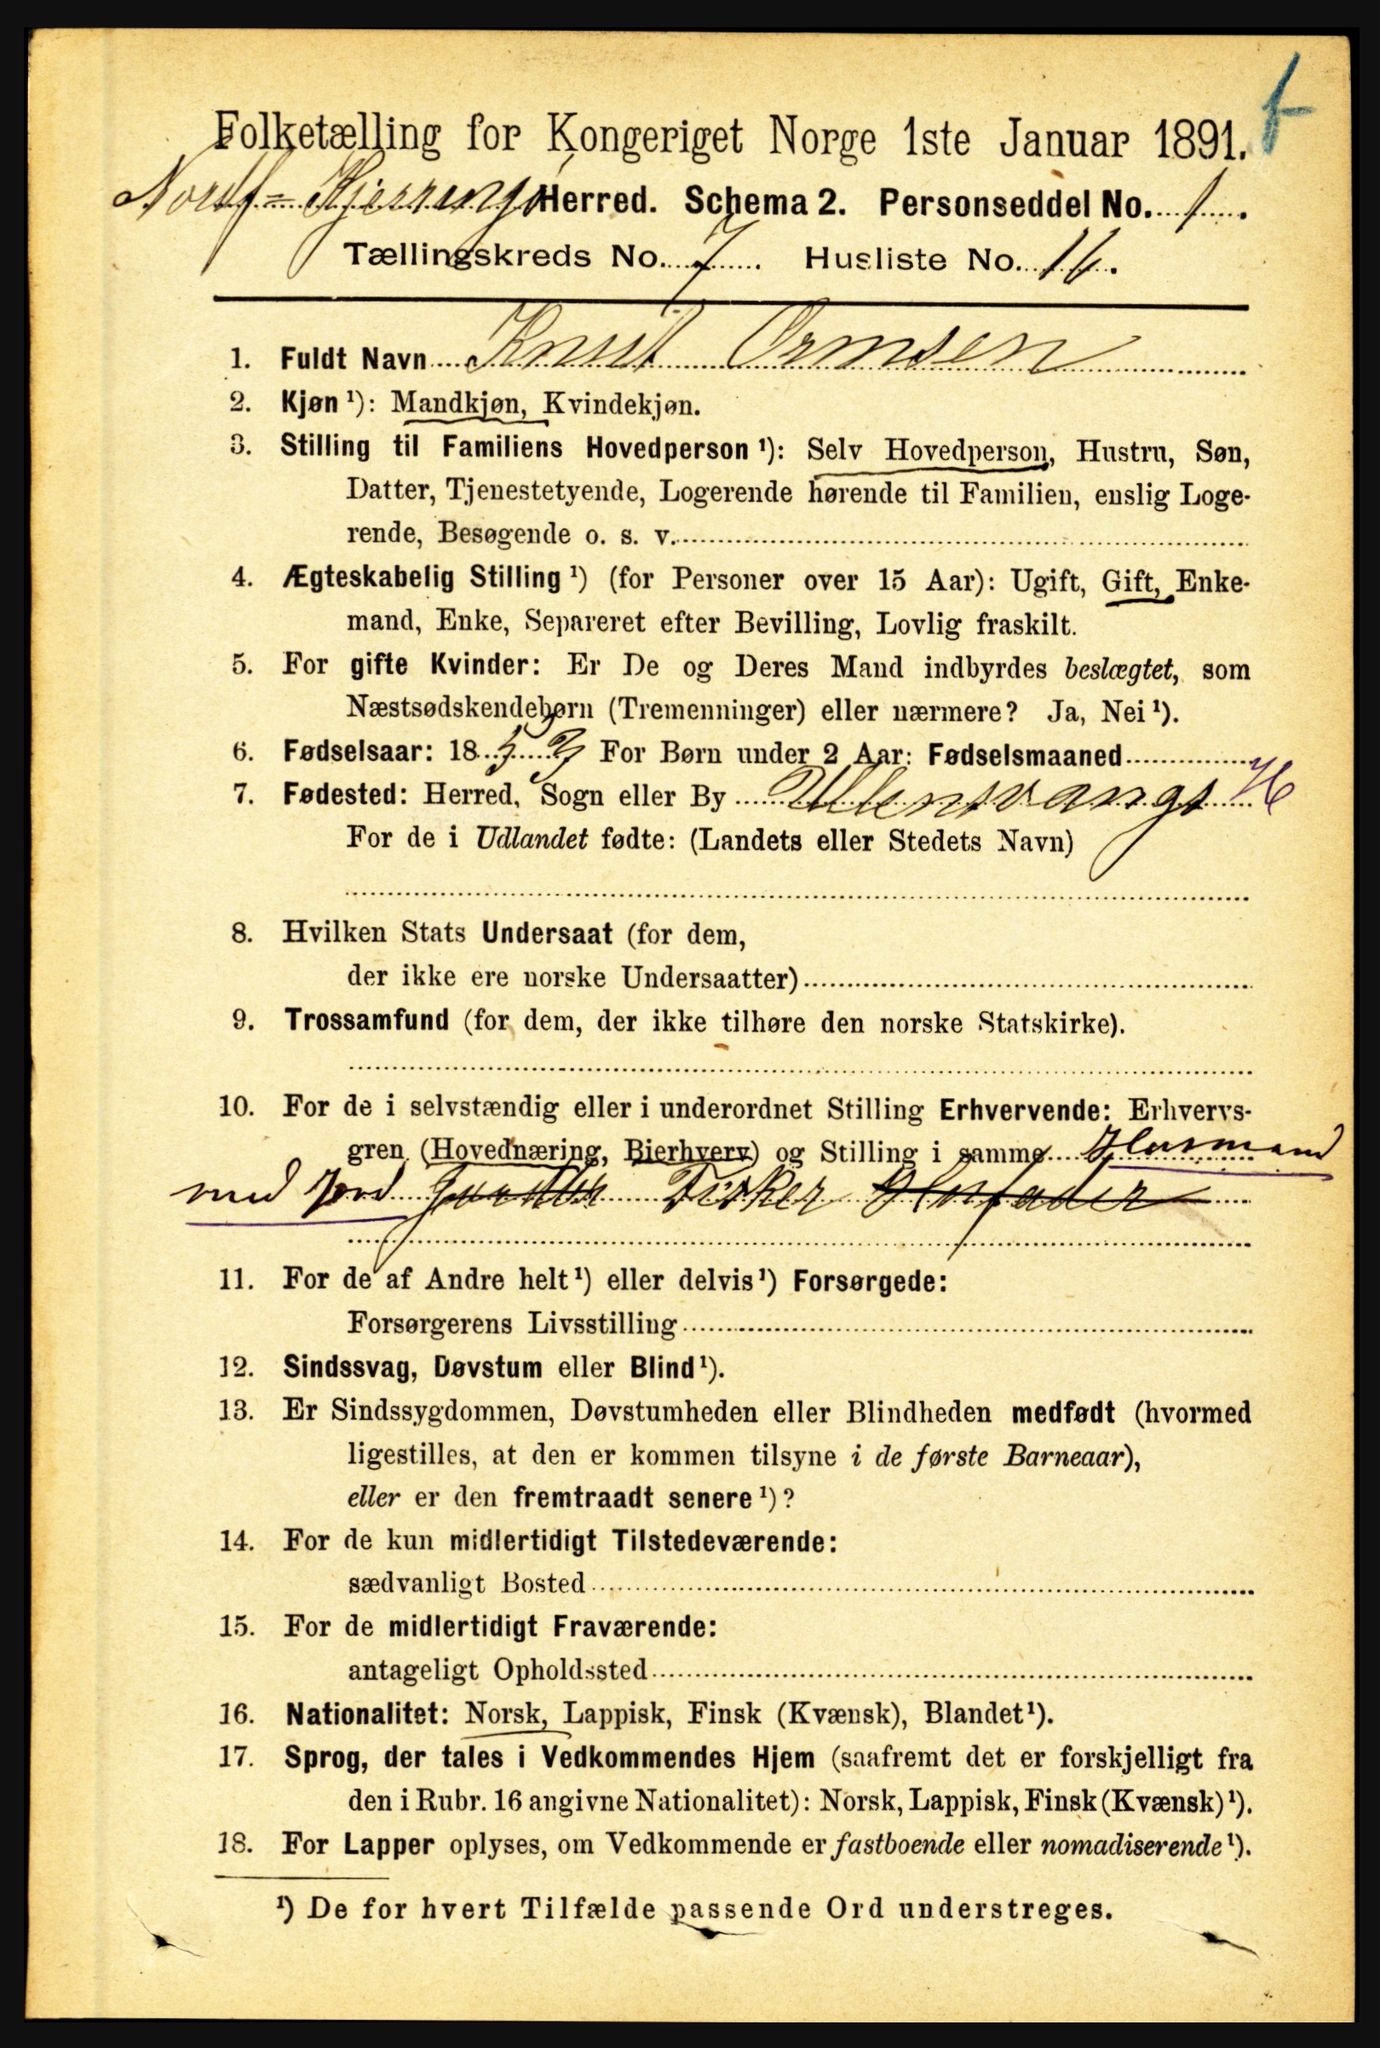 Folketælling for Kongeriget Norge 1ste Januar 1891.
Nordf=Kjerringø Herred. Schema 2. Personseddel No. 1.
Tællingskreds No. 7. Husliste No. 16.
1. Fuldt Navn Knut Ormsen
2. Kjøn ¹): Mandkjøn, Kvindekjøn.
3. Stilling til Familiens Hovedperson ¹): Selv Hovedperson, Hustru, Søn,
Datter, Tjenestetyende, Logerende hørende til Familien, enslig Loge-
rende, Besøgende o. s. v.
4. Ægteskabelig Stilling ¹) (for Personer over 15 Aar): Ugift, Gift, Enke-
mand, Enke, Separeret efter Bevilling, Lovlig fraskilt.
5. For gifte Kvinder: Er De og Deres Mand indbyrdes beslægtet, som
Næstsødskendebørn (Tremenninger) eller nærmere? Ja, Nei ¹).
6. Fødselsaar: 18 For Børn under 2 Aar: Fødselsmaaned
7. Fødested: Herred, Sogn eller By Ullensvangs H
For de i Udlandet fødte: (Landets eller Stedets Navn)
8. Hvilken Stats Undersaat (for dem,
der ikke ere norske Undersaatter)
9. Trossamfund (for dem, der ikke tilhøre den norske Statskirke).
10. For de i selvstændig eller i underordnet Stilling Erhvervende: Erhvervs-
gren (Hovednæring, Bierhverv) og Stilling i samme Husmand
med Jord Fisker Husfader
11. For de af Andre helt ¹) eller delvis ¹) Forsørgede:
Forsørgerens Livsstilling
12. Sindssvag, Døvstum eller Blind ¹).
13. Er Sindssygdommen, Døvstumheden eller Blindheden medfødt (hvormed
ligestilles, at den er kommen tilsyne i de første Barneaar),
eller er den fremtraadt senere ¹)?
14. For de kun midlertidigt Tilstedeværende:
sædvanligt Bosted
15. For de midlertidigt Fraværende:
antageligt Opholdssted
16. Nationalitet: Norsk, Lappisk, Finsk (Kvænsk), Blandet ¹).
17. Sprog, der tales i Vedkommendes Hjem (saafremt det er forskjelligt fra
den i Rubr. 16 angivne Nationalitet): Norsk, Lappisk, Finsk (Kvænsk) ¹).
18. For Lapper oplyses, om Vedkommende er fastboende eller nomadiserende ¹).
¹) De for hvert Tilfælde passende Ord understreges.